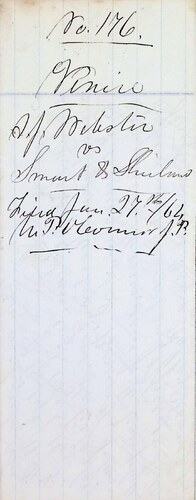 No. 176.
Venire
Webster
vs
Smart &
Filed Jan. 27th/64
J.P.